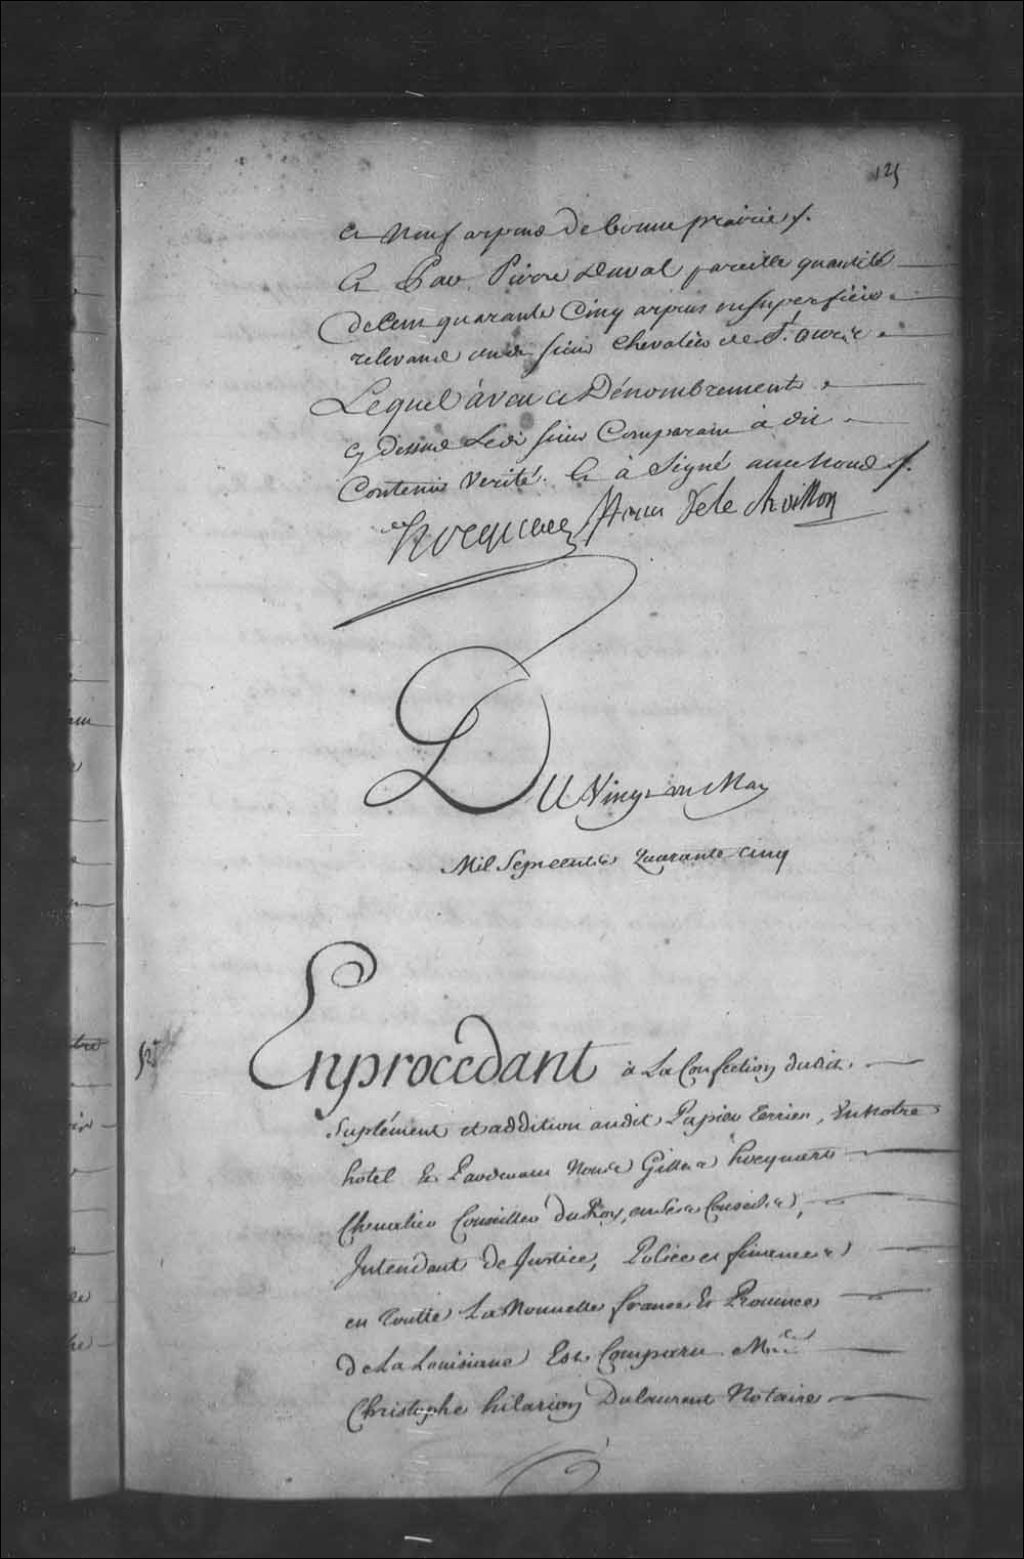 125
et neuf arpens de bonne prairie /.
Et Par Pierre Duval pareille quantité
de Cent quarante Cinq arpens en superficie
relevant sieur Chevalier de St.
Lequel aveu et Dénombrement
cy dessus Ledt sieur Comparant à dit
Contenir Verité. Et à Signé avec nous /.
hocquart
Du Vingt un May
Mil Sept cents Quarante cinq
52e
En procedant à La Confection dudit
Suplément et addition audit Papier terrier, En notre
hotel Et Pardevant Nous Gilles hocquart
Chevalier Conseiller du Roy, en ses Conseils,
Intendant de Justice, Police et finances
en toutte La Nouvelle france Et Province
de La Louisiane Est Comparu Me
Christophe hilarion Dulaurent Notaire